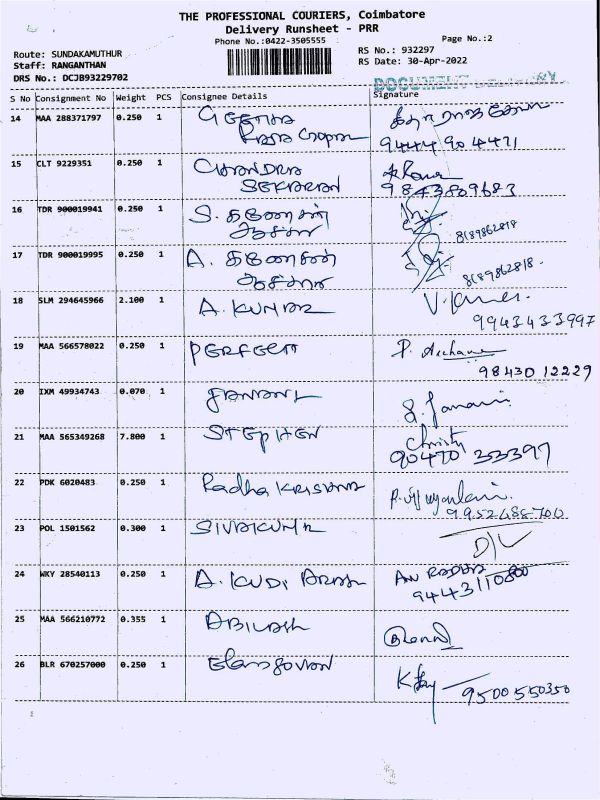 THE PROFESSIONAL COURIERS, Coimbatore
Delivery Runsheet - PRR
Phone No.:0422-3505555
Page No.:2
Route: SUNDAKAMUTHUR
Staff: RANGANTHAN
DRS No.: DCJB93229702
RS No.: 932297
RS Date: 30-Apr-2022
S No Consignment No Weight PCS Consignee Details Signature
14 MAA 288371797 0.250 1 GEETHA
9444904471
15 CLT 9229351 0.250 1 CHANDRA
SEKARAN 9843809683
16 TDR 900019941 0.250 1 S. கணேசன்
ஆச்சார் 8189862818
17 TDR 900019995 0.250 1 A. கணேசன்
ஆச்சார் 8189862818.
18 SLM 294645966 2.100 1 A. KUMAR V. Kumar.
9943433997
19 MAA 566578022 0.250 1 PERFECT P. Archana
98430 12229
20 IXM 49934743 0.070 1 JANANI J. Janani
21 MAA 565349268 7.800 1 STEPHEN Christy
90470 33397
22 PDK 6020483 0.250 1 Radha KRISHNA
9952488700
23 POL 1501562 0.300 1 SIVAKUMAR D/L
24 WKY 28540113 0.250 1 A. KUDI ARASU ANURADHA
9444311 0800
25 MAA 566210772 0.355 1 ABILASH
26 BLR 670257000 0.250 1 Elangovan
9500550350